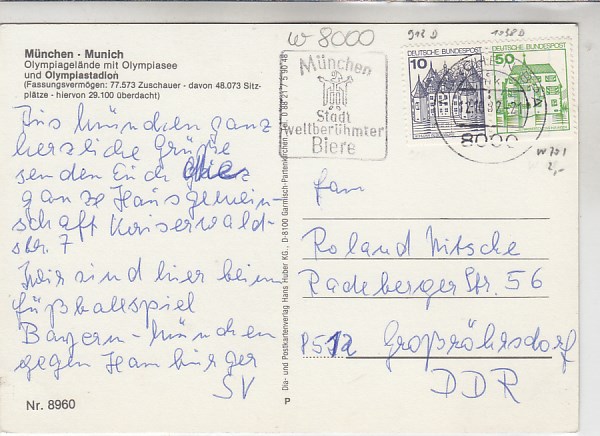 W 8000
912 D
1038 D
München - Munich
Olympiagelände mit Olympiasee
und Olympiastadion
(Fassungsvermögen: 77.573 Zuschauer - davon 48.073 Sitz-
plätze - hiervon 29.100 überdacht)
München
Stadt
weltberühmter
Biere
10
DEUTSCHE BUNDESPOST
50
DEUTSCHE BUNDESPOST
8000
W 701
2,-
Aus München ganz
herzliche Grüße
senden Euch
ganze Hausgemein-
schaft Kaiserwald-
str. 7
Wir sind hier beim
Fußballspiel
Bayern-München
gegen Hamburger
SV
Fam
Roland Nitsche
Radeberger Str. 56
8512 Großröhrsdorf
DDR
Dia- und Postkartenverlag Hans Huber KG., D-8100 Garmisch-Partenkirchen, Tel. 0 88 21 / 5 90 48
Nr. 8960
P